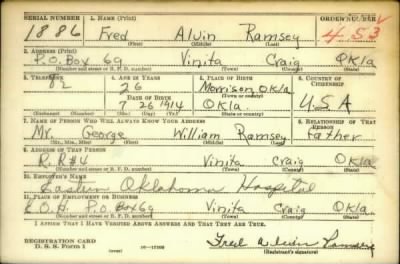 SERIAL NUMBER 1. NAME (Print) ORDER NUMBER
1886 Fred Alvin Ramsey 453
(First) (Middle) (Last)
2. ADDRESS (Print)
P.O. Box 69 Vinita Craig Okla
(Number and street or R. F. D. number) (Town) (County) (State)
3. TELEPHONE 4. AGE IN YEARS 5. PLACE OF BIRTH 6. COUNTRY OF CITIZENSHIP
82 26 Morrison Okla
DATE OF BIRTH (Town or county)
7 26 1914 Okla. U.S.A
(Exchange) (Number) (Mo.) (Day) (Yr.) (State or country)
7. NAME OF PERSON WHO WILL ALWAYS KNOW YOUR ADDRESS 8. RELATIONSHIP OF THAT PERSON
Mr. George William Ramsey Father
(Mr., Mrs., Miss) (First) (Middle) (Last)
9. ADDRESS OF THAT PERSON
R.R #4 Vinita Craig Okla
(Number and street or R. F. D. number) (Town) (County) (State)
10. EMPLOYER'S NAME
Eastern Oklahoma Hospital
11. PLACE OF EMPLOYMENT OR BUSINESS
E.O.H. P.O Box 69 Vinita Craig Okla
(Number and street or R. F. D. number) (Town) (County) (State)
I AFFIRM THAT I HAVE VERIFIED ABOVE ANSWERS AND THAT THEY ARE TRUE.
REGISTRATION CARD
D. S. S. Form 1 (over) 16-17105 Fred Alvin Ramsey